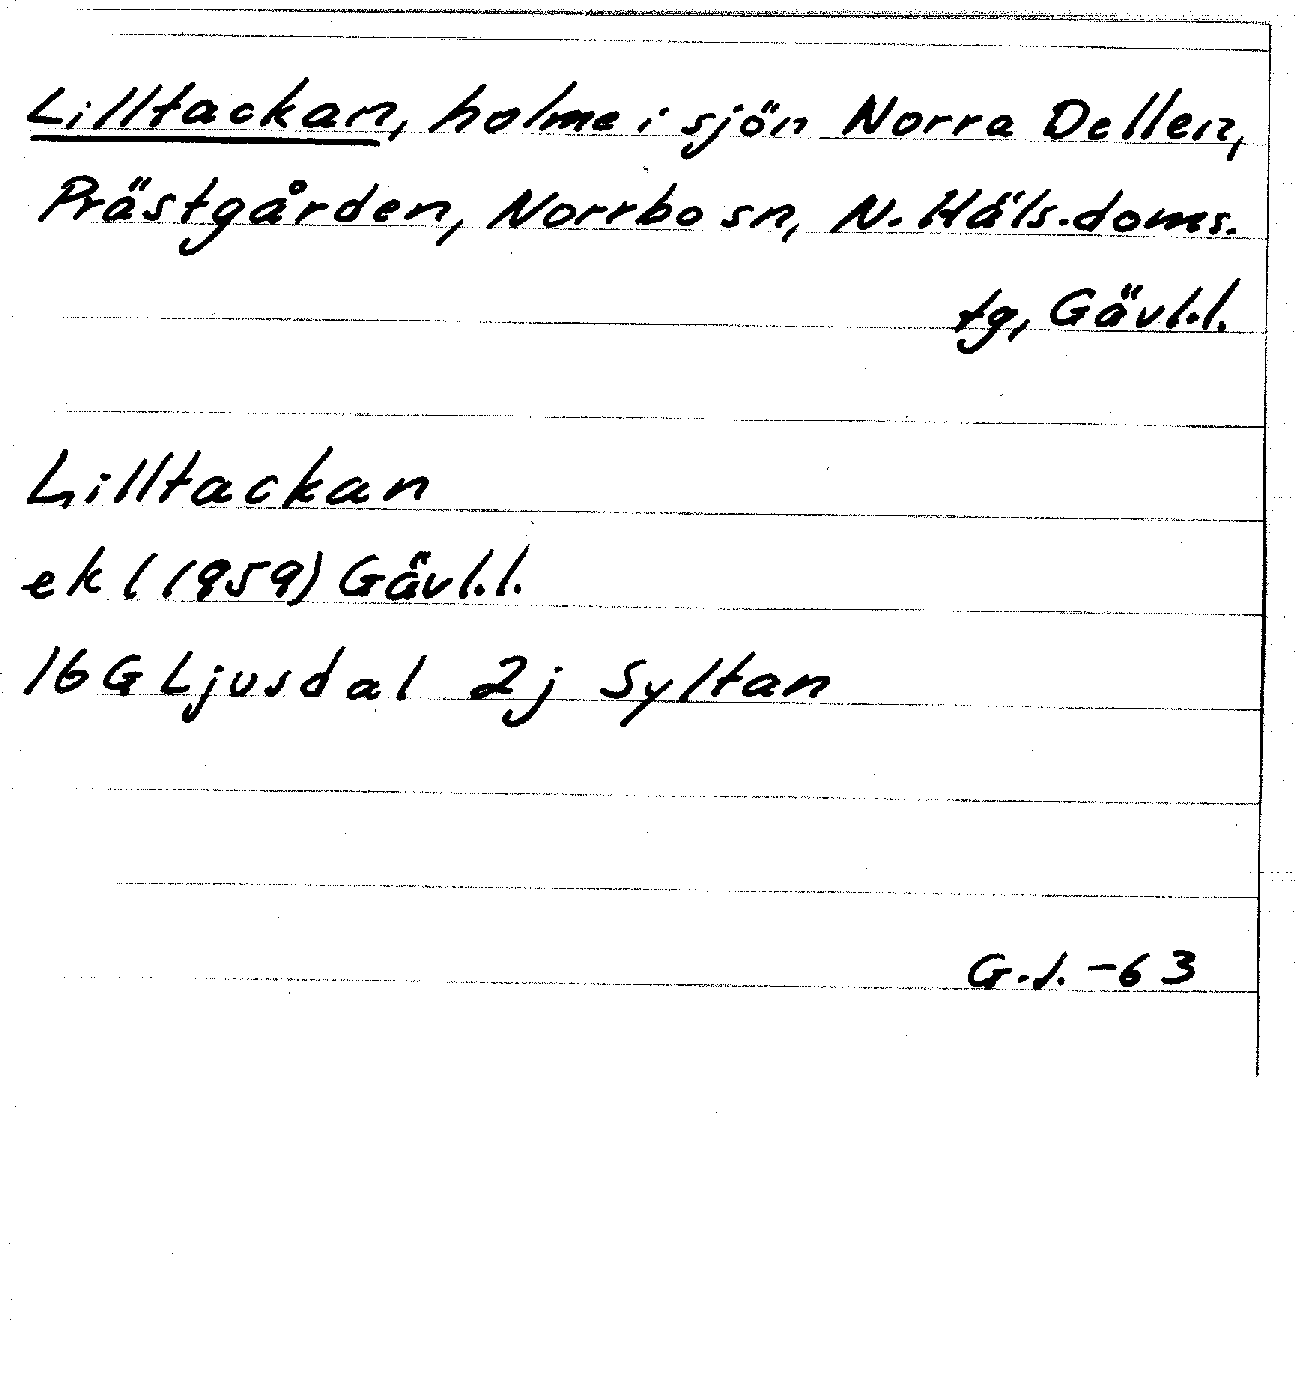 Lilltackan, holme i sjön Norra Dellen,
Prästgården, Norrbo sn, N. Häls. doms.
tg, Gävl.l.
Lilltackan
ek (1959) Gävl.l.
16G Ljusdal 2j Syltan
G.J. -63